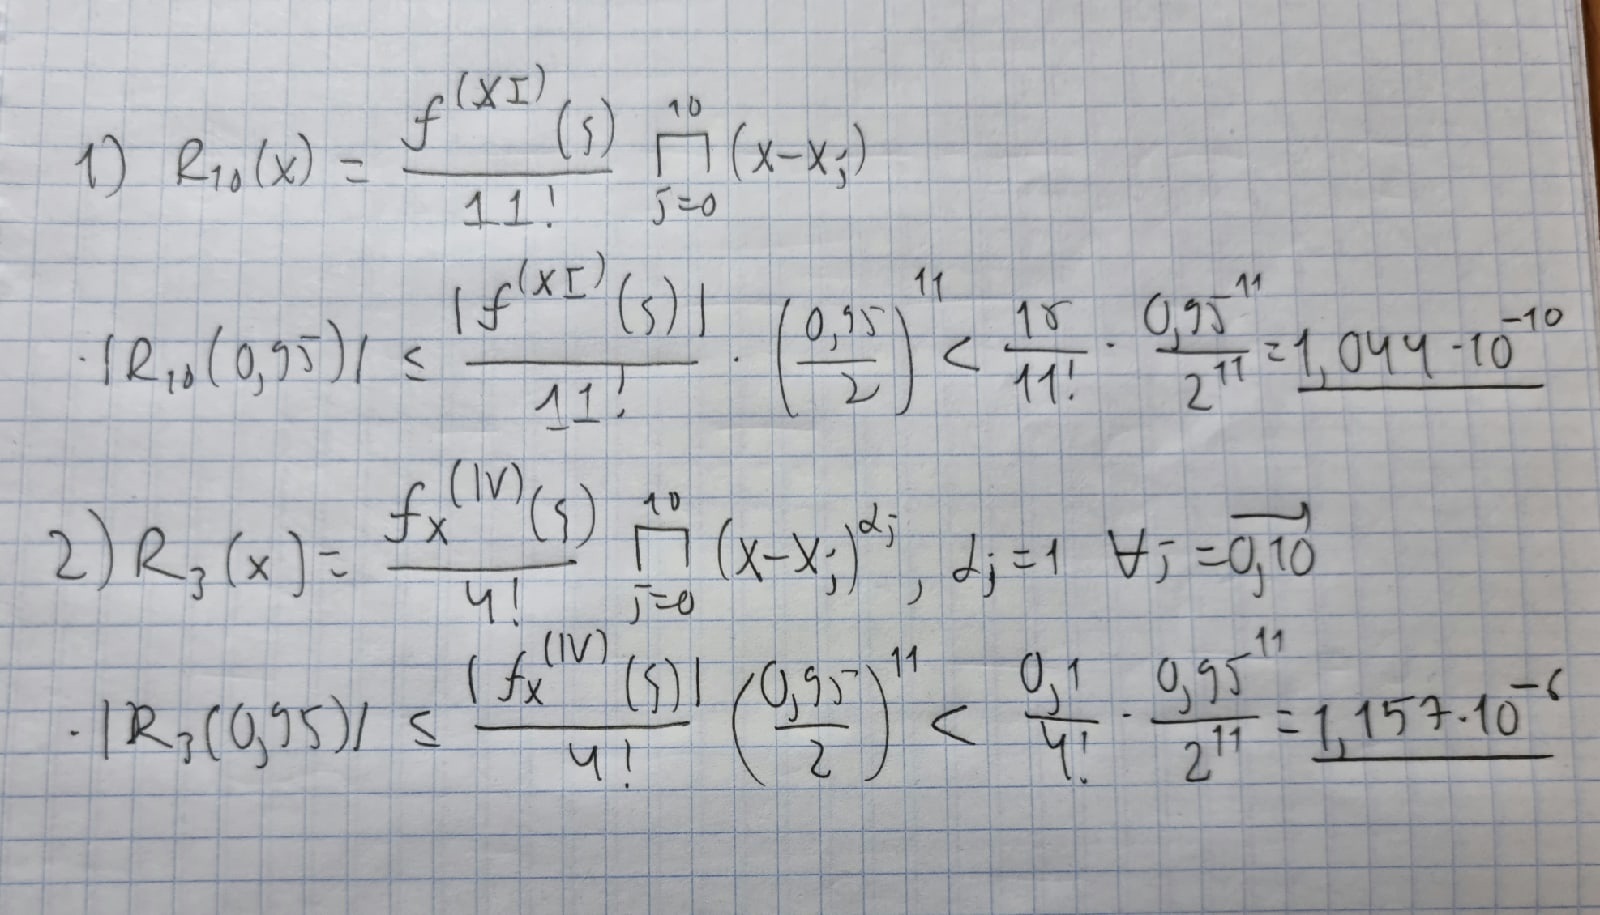 1) R₁₀(x) = f^(XI)(ξ) / 11! ∏_{j=0}^{10} (x-x_j)
·|R₁₀(0,95)| ≤ |f^(XI)(ξ)| / 11! · (0,95/2)^11 < 15/11! · 0,95^11/2^11 = 1,044·10^-10
2) R₃(x) = f_x^(IV)(ξ) / 4! ∏_{j=0}^{10} (x-x_j)^{α_j}, α_j=1 ∀j=0,10
·|R₃(0,95)| ≤ |f_x^(IV)(ξ)| / 4! (0,95/2)^11 < 0,1/4! · 0,95^11/2^11 = 1,157·10^-6